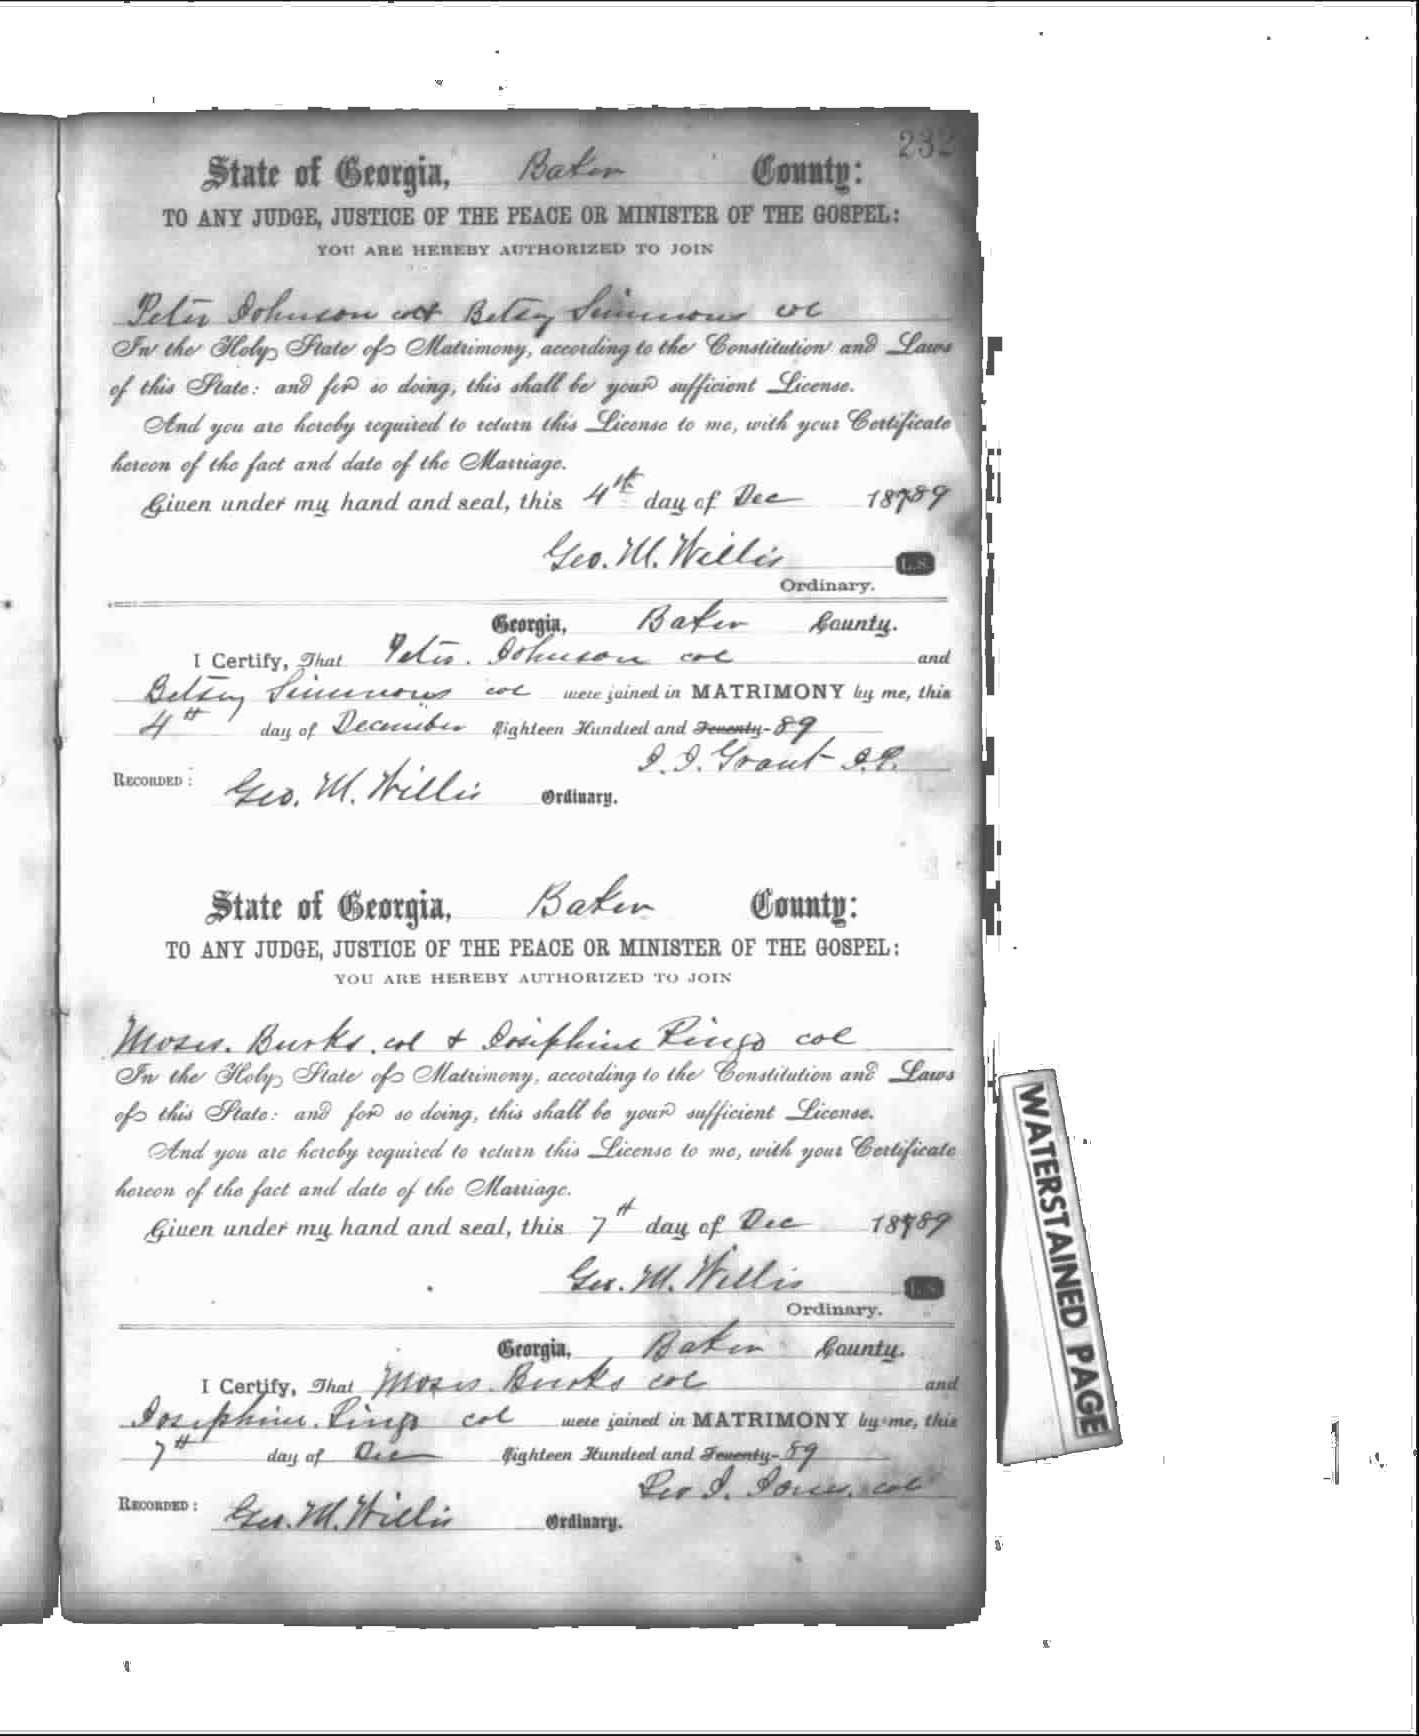 232
State of Georgia, Baker County:
TO ANY JUDGE, JUSTICE OF THE PEACE OR MINISTER OF THE GOSPEL:
YOU ARE HEREBY AUTHORIZED TO JOIN
Peter Johnson col & Betsey Simmons col
In the Holy State of Matrimony, according to the Constitution and Laws
of this State: and for so doing, this shall be your sufficient License.
And you are hereby required to return this License to me, with your Certificate
hereon of the fact and date of the Marriage.
Given under my hand and seal, this 4th day of Dec 18789
Geo. M. Willis L.S.
Ordinary.
Georgia, Baker County.
I Certify, That Peter Johnson col and
Betsey Simmons col were joined in MATRIMONY by me, this
4th day of December Eighteen Hundred and Seventy-89
J. J. Grant J.P.
RECORDED: Geo. M. Willis Ordinary.
State of Georgia, Baker County:
TO ANY JUDGE, JUSTICE OF THE PEACE OR MINISTER OF THE GOSPEL:
YOU ARE HEREBY AUTHORIZED TO JOIN
Moses Burks col & Josiphine Ringo col
In the Holy State of Matrimony, according to the Constitution and Laws
of this State: and for so doing, this shall be your sufficient License.
And you are hereby required to return this License to me, with your Certificate
hereon of the fact and date of the Marriage.
Given under my hand and seal, this 7th day of Dec 18789
Geo. M. Willis L.S.
Ordinary.
Georgia, Baker County.
I Certify, That Moses Burks col and
Josiphine Ringo col were joined in MATRIMONY by me, this
7th day of Dec Eighteen Hundred and Seventy-89
J. col
RECORDED: Geo. M. Willis Ordinary.
WATERSTAINED PAGE